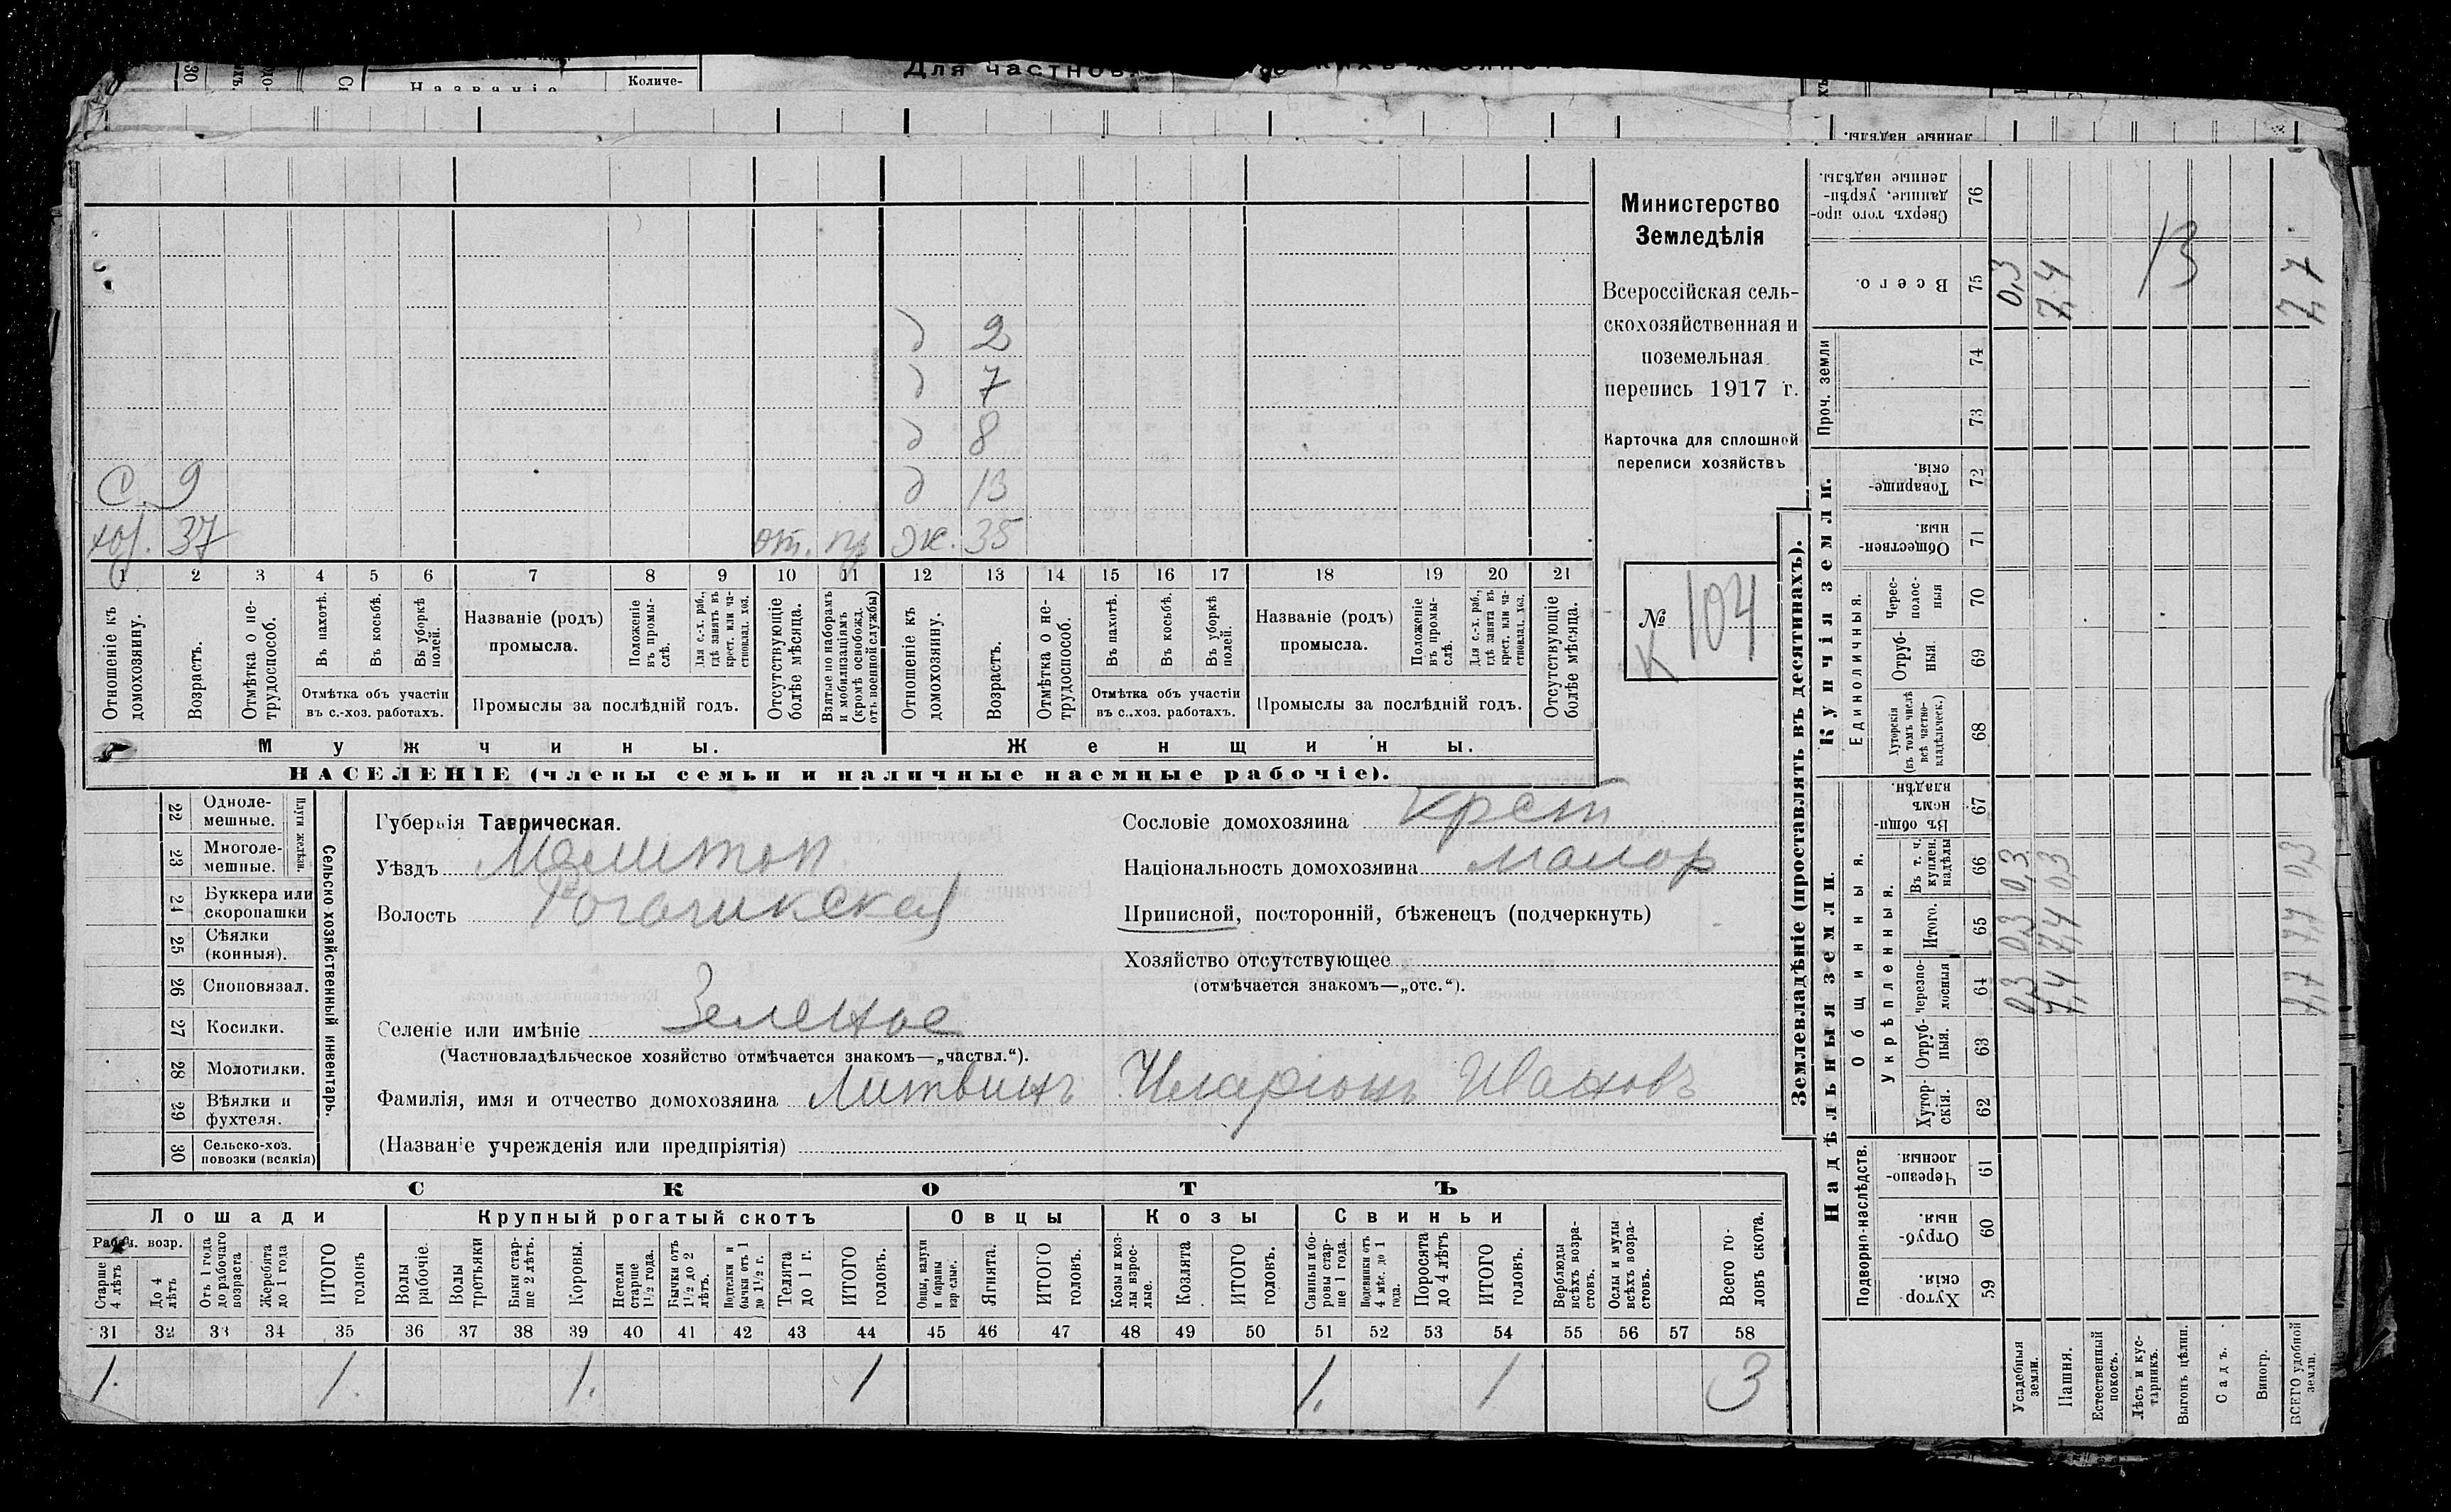 Для частнов
Количе-
Названіе
д 2
д 7
д 8
С. 9 д 13
хоз. 37 от. пр ж. 35
1 2 3 4 5 6 7 8 9 10 11 12 13 14 15 16 17 18 19 20 21
Отношеніе къ домохозяину.
Возрастъ.
Отмѣтка о не-трудоспособ.
Въ пахотѣ.
Въ косьбѣ.
Въ уборкѣ полей.
Отмѣтка объ участіи
въ с.-хоз. работахъ.
Названіе (родъ)
промысла.
Положеніе въ промы-слѣ.
Для с.-х. раб., гдѣ занятъ въ крест. или ча-стновлад. хоз.
Промыслы за послѣдній годъ.
Отсутствующіе болѣе мѣсяца.
Взятые по наборамъ и мобилизаціямъ (кромѣ освобожд. отъ военной службы)
Отношеніе къ домохозяину.
Возрастъ.
Отмѣтка о не-трудоспособ.
Въ пахотѣ.
Въ косьбѣ.
Въ уборкѣ полей.
Отмѣтка объ участіи
въ с.-хоз. работахъ.
Названіе (родъ)
промысла.
Положеніе въ промы-слѣ.
Для с.-х. раб., гдѣ занята въ крест. или ча-стновлад. хоз.
Промыслы за послѣдній годъ.
Отсутствующіе болѣе мѣсяца.
Мужчины. Женщины.
НАСЕЛЕНІЕ (члены семьи и наличные наемные рабочіе).
Министерство
Земледѣлія
Всероссійская сель-
скохозяйственная и
поземельная
перепись 1917 г.
Карточка для сплошной
переписи хозяйствъ
№ 104
К
Сельско хозяйственный инвентарь.
Плуги желѣзн.
22 Одноле-
мешные.
23 Многоле-
мешные.
24 Буккера или
скоропашки
25 Сѣялки
(конныя).
26 Сноповязал.
27 Косилки.
28 Молотилки.
29 Вѣялки и
фухтеля.
30 Сельско-хоз.
повозки (всякія)
Губернія Таврическая.
Уѣздъ Мелитоп
Волость Рогачикская
Селеніе или имѣніе Зеленое
(Частновладѣльческое хозяйство отмѣчается знакомъ—„частвл.“).
Фамилія, имя и отчество домохозяина Литвинъ Иларіонъ Ивановъ
(Названіе учрежденія или предпріятія)
Сословіе домохозяина крест
Національность домохозяина малор
Приписной, посторонній, бѣженецъ (подчеркнуть)
Хозяйство отсутствующее
(отмѣчается знакомъ—„отс.“).
СКОТЪ
Лошади Крупный рогатый скотъ Овцы Козы Свиньи
Рабоч. возр.
Старше 4 лѣтъ
До 4 лѣтъ
Отъ 1 года до рабочаго возраста
Жеребята до 1 года
ИТОГО головъ
Волы рабочіе.
Волы третьяки
Быки стар-ше 2 лѣтъ.
Коровы.
Нетели старше 1½ года.
Бычки отъ 1½ до 2 лѣтъ.
Подтелки и бычки отъ 1 до 1½ г.
Телята до 1 г.
ИТОГО головъ.
Овцы, валухи и бараны взрослые.
Ягнята.
ИТОГО головъ.
Козы и коз-лы взрос-лые.
Козлята
ИТОГО головъ.
Свиньи и бо-ровы стар-ше 1 года.
Подсвинки отъ 4 мѣс. до 1 года.
Поросята до 4 лѣтъ
ИТОГО головъ.
Верблюды всѣхъ возра-стовъ.
Ослы и мулы всѣхъ возра-стовъ.
Всего го-ловъ скота.
31 32 33 34 35 36 37 38 39 40 41 42 43 44 45 46 47 48 49 50 51 52 53 54 55 56 57 58
1. 1. 1. 1 1. 1 3
Землевладѣніе (проставлять въ десятинахъ).
Купчія земли.
Надѣльныя земли.
Сверхъ того про-данные, укрѣп-ленные надѣлы. 76
Всего. 75 0,3 7,4 13 7,7
Проч. земли 74
73
Товарище-скія. 72
Обществен-ныя. 71
Единоличныя.
Черес-полос-ныя 70
Отруб-ныя 69
Хуторскія (въ томъ числѣ всѣ частно-владѣльческ.) 68
Общинныя.
Въ общи-номъ владѣн. 67
Укрѣпленныя.
Въ т. ч. куплен. надѣлы 66 0,3 0,3 0,3
Итого. 65 0,3 7,4 7,7
Черезпо-лосныя 64 0,3 7,4 7,7
Отруб-ныя. 63
Хутор-скія. 62
Подворно-наслѣдств.
Черезпо-лосныя. 61
Отруб-ныя. 60
Хутор-скія. 59
Усадебныя земли.
Пашня.
Естественный покосъ.
Лѣсъ и кус-тарникъ.
Выгонъ цѣлин.
Садъ.
Виногр.
ВСЕГО удобной земли.